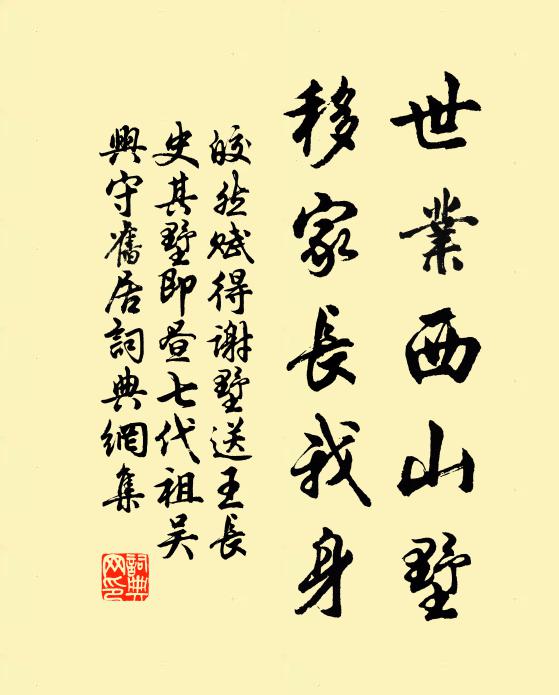 世業西山墅
移家長我身
皎然賦得謝墅送王長
史其墅即晝七代祖吳
興守舊居詞典網集
詞典
网印